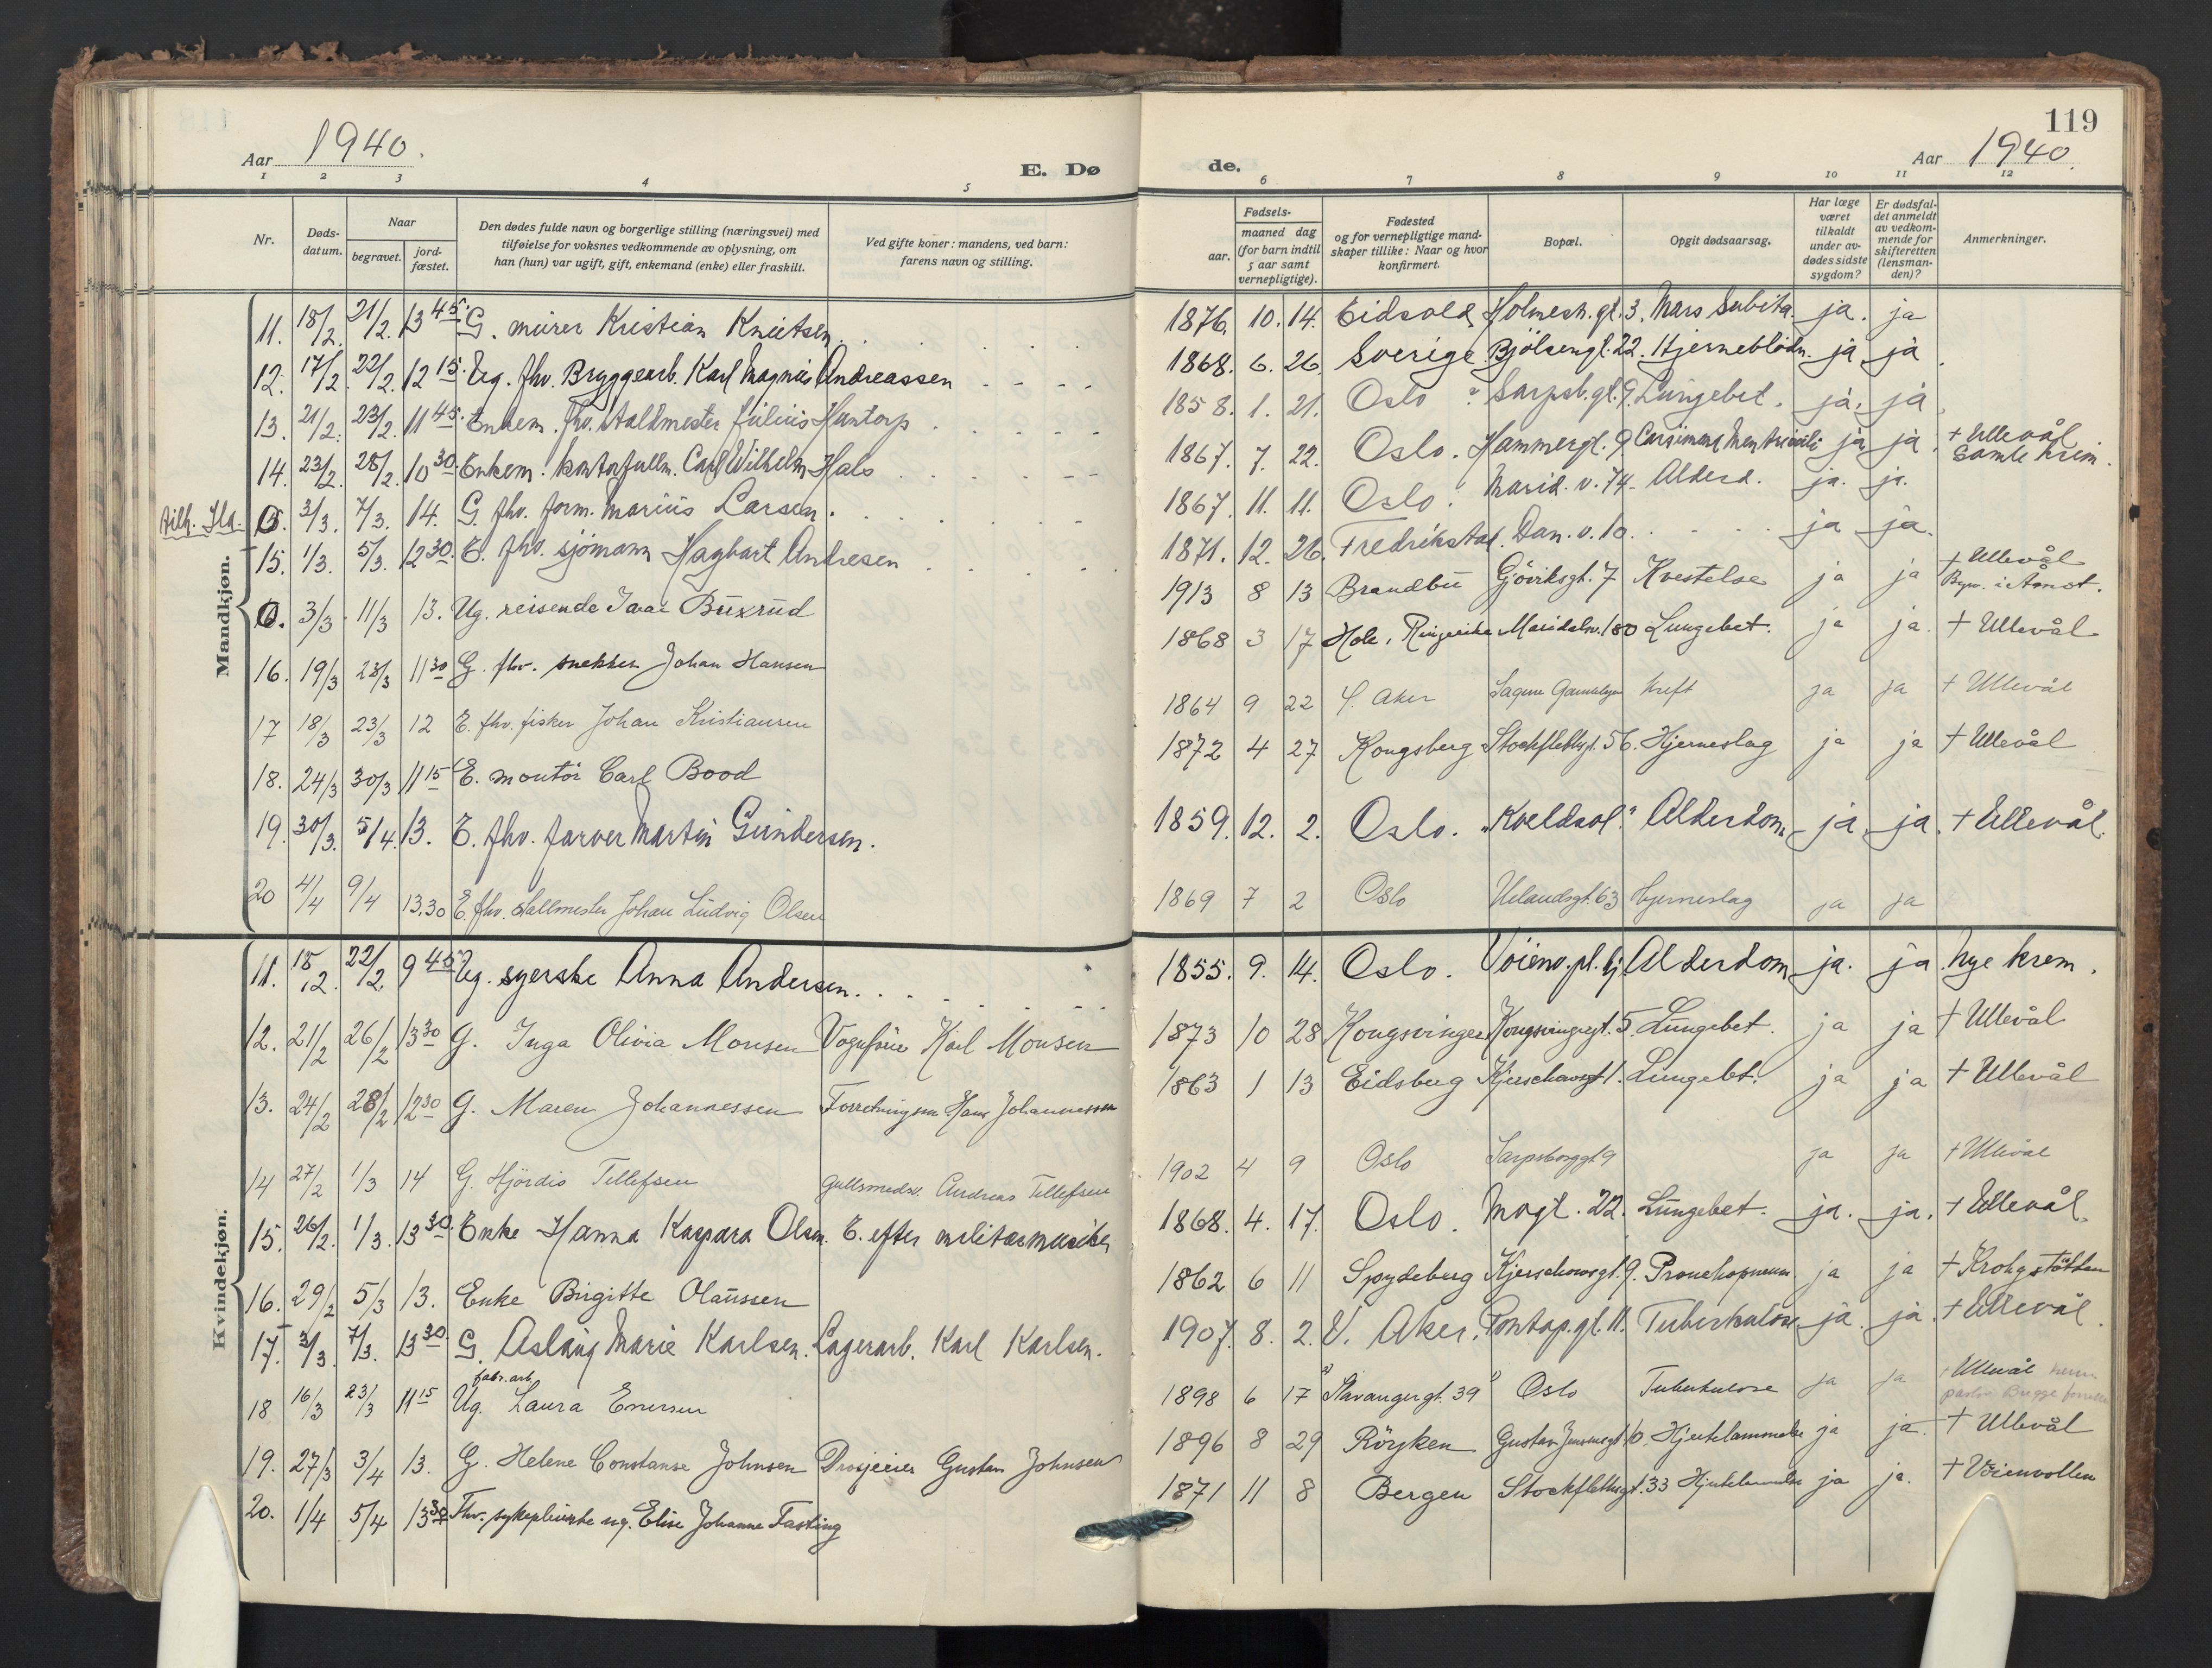 119
Aar 1940.
E. Dø
de.
Aar 1940.
1 2 3 4 5 6 7 8 9 10 11 12
Nr.
Døds-
datum.
Naar
begravet.
jord-
fæstet.
Den dødes fulde navn og borgerlige stilling (næringsvei) med
tilføielse for voksnes vedkommende av oplysning, om
han (hun) var ugift, gift, enkemand (enke) eller fraskilt.
Ved gifte koner: mandens, ved barn:
farens navn og stilling.
Fødsels-
aar.
maaned dag
(for barn indtil
5 aar samt
vernepligtige).
Fødested
og for vernepligtige mand-
skaper tillike: Naar og hvor
konfirmert.
Bopæl.
Opgit dødsaarsag.
Har læge
været
tilkaldt
under av-
dødes sidste
sygdom?
Er dødsfal-
det anmeldt
av vedkom-
mende for
skifteretten
(lensman-
den)?
Anmerkninger.
Mandkjøn.
11. 18/2. 21/2. 13 45. G. murer Kristian Knutsen. 1876. 10. 14. Eidsvold Holmesh.gt. 3. Mars Subita. ja. ja
12. 17/2. 22/2. 12 15. Ug. fhv. Bryggearb. Karl Magnus Andreassen 1868. 6. 26. Sverige. Bjölsengt. 22. Hjerneblödn. ja ja
13. 21/2. 23/2. 11 45. Enkem. fhv. Staldmester Julius Huntorp 1858. 1. 21. Oslo Sarpsb.gt. 9. Lungebet. ja. ja
14. 23/2. 28/2. 10 30. Enkem. kontorfullm. Carl Wilhelm Hals 1867. 7. 22. Oslo. Hammergt. 9 ja ja + Ullevål Gamle krem.
Tilh. Ila. 3/3. 7/3. 14. G. fhv. form. Marius Larsen. 1867. 11. 11. Oslo. Marid. v. 74. Alderd. ja. ja.
15. 1/3. 5/3. 12 30. E. fhv. sjömann Hagbart Andresen 1871. 12. 26. Fredrikstad. Dan. v. 10. ja ja.
0. 3/3 11/3 13. Ug. reisende Ivar Buxrud 1913 8 13 Brandbu Gjöviksgt. 7 Kvestelse ja ja + Ullevål Begr. i Aamot.
16. 19/3 23/3 11 30 G. fhv. snekker Johan Hansen 1868 3 17 Hole, Ringerike Maridalsv. 180 Lungebet. ja ja. + Ullevål
17 18/3 23/3 12 E. fhv. fisker Johan Kristiansen 1864 9 22 Aker Sagene Gamlehjem Kreft ja ja + Ullevål
18. 24/3 30/3 11 15 E. montör Carl Bood 1872 4 27 Kongsberg Stockflethsgt. 56. Hjerneslag ja ja + Ullevål
19. 30/3. 5/4. 13. E. fhv. farver Martin Gundersen. 1859. 12. 2. Oslo. "Kveldsol." Alderdom. ja. ja. + Ullevål.
20 4/4 9/4 13.30 E. fhv. stallmester Johan Ludvig Olsen 1869 7 2 Oslo Uelandsgt. 63 Hjerneslag ja ja
Kvindekjøn.
11. 18/2. 22/2. 9 45. Ug. syerske Anna Andersen. 1855. 9. 14. Oslo. Alderdom ja. ja. Nye krem.
12. 21/2 26/2 13 30 G. Inga Olivia Monsen Vognförer Karl Monsen 1873 10 28 Kongsvinger Kongsvingergt. 5. Lungebet. ja ja + Ullevål
13. 24/2 28/2 12 30 G. Maren Johannessen Forretningsm. Hans Johannessen 1863 1 13 Eidsberg Kjerschowsgt 1. Lungebt. ja ja + Ullevål
14 27/2 1/3 14 G. Hjördis Tellefsen Gullsmedsv. Andreas Tellefsen 1902 4 9 Oslo Sarpsborggt 9 ja ja + Ullevål
15. 26/2. 1/3. 13 30. Enke Hanna Kaspara Olsen. E. efter militærmusiker 1868. 4. 17. Oslo. Mogt. 22. Lungebet. ja. ja. + Ullevål.
16. 29/2 5/3 13. Enke Birgitte Olaussen 1862 6 11 Spydeberg Kjerschowsgt. 9. Bronchopneum. ja ja + Krohgstötten
17. 3/3. 7/3. 13 30 G. Aslaug Marie Karlsen. Lagerarb. Karl Karlsen. 1907. 8. 2. V. Aker. Pontop.gt. 11. Tuberkulose ja. ja. + Ullevål.
18 16/3 23/3 11 15 Ug. fabr.arb. Laura Enersen 1898 6 17 Stavangergt. 39 Oslo Tuberkulose ja ja + Ullevål
19. 27/3 3/4 13. G. Helene Constanse Johnsen Drosjeeier Gustav Johnsen 1896 8 29 Röyken Gustav Jensensgt. 10. Hjertelammelse ja ja. + Ullevål
20. 1/4 5/4 13 30 Fhv. sykepleierske ug. Elise Johanne Fasting 1871 11 8 Bergen Stockflethsgt. 33 Hjertelammelse ja ja. + Vöienvollen